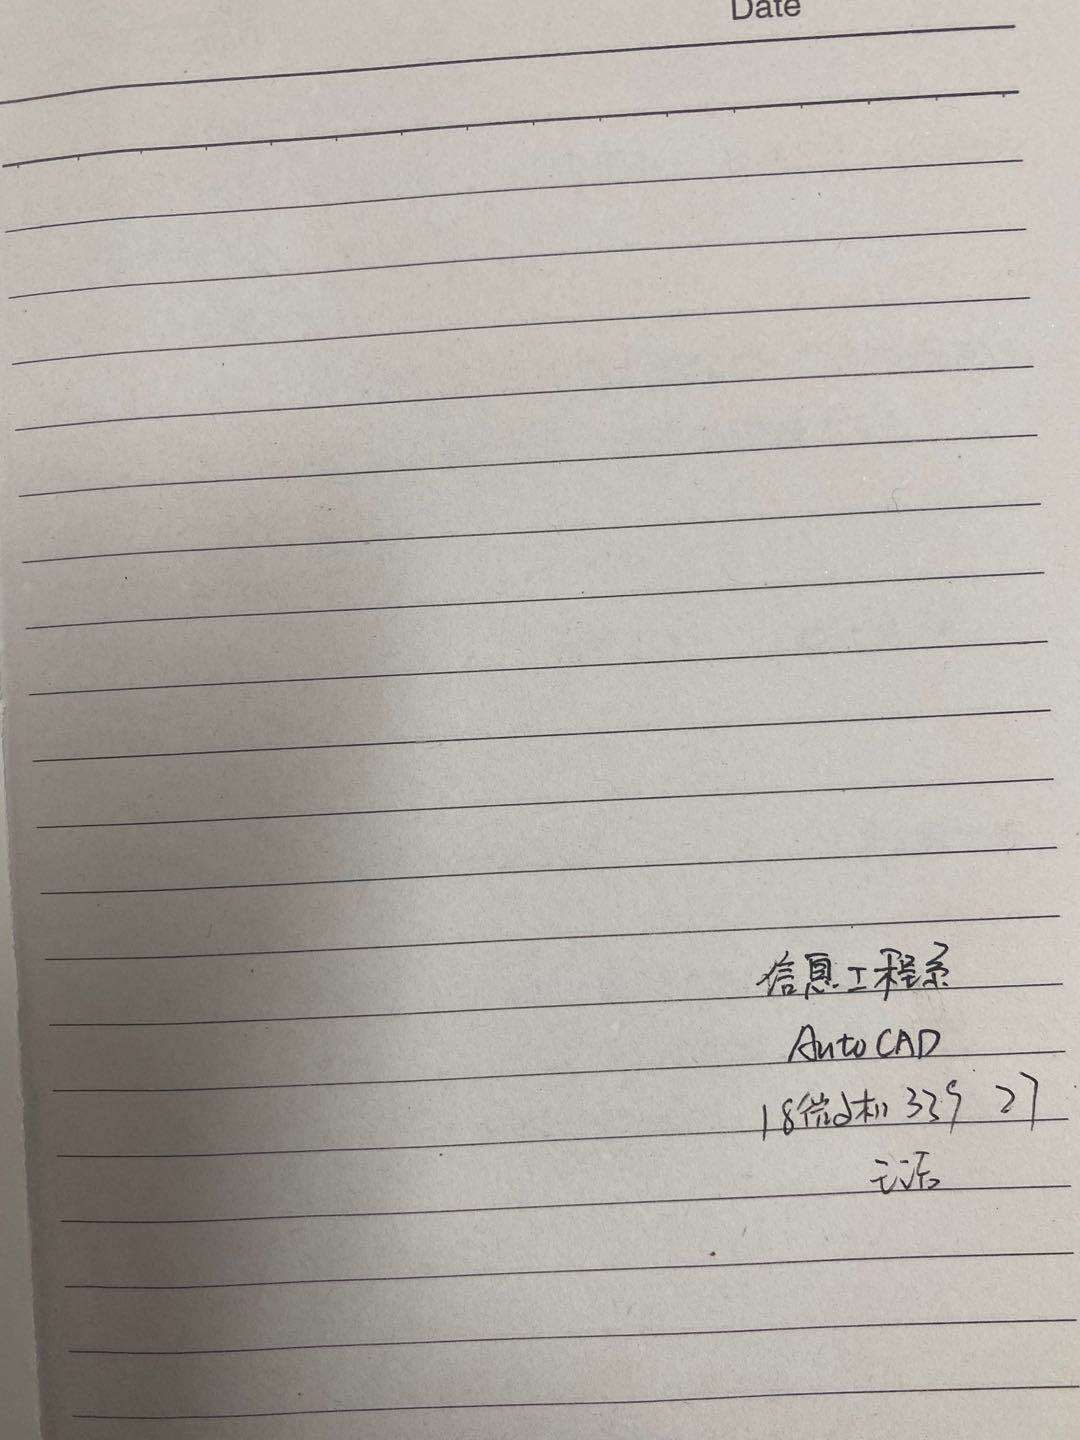 Date
信息工程系
AutoCAD
18微机 339 27